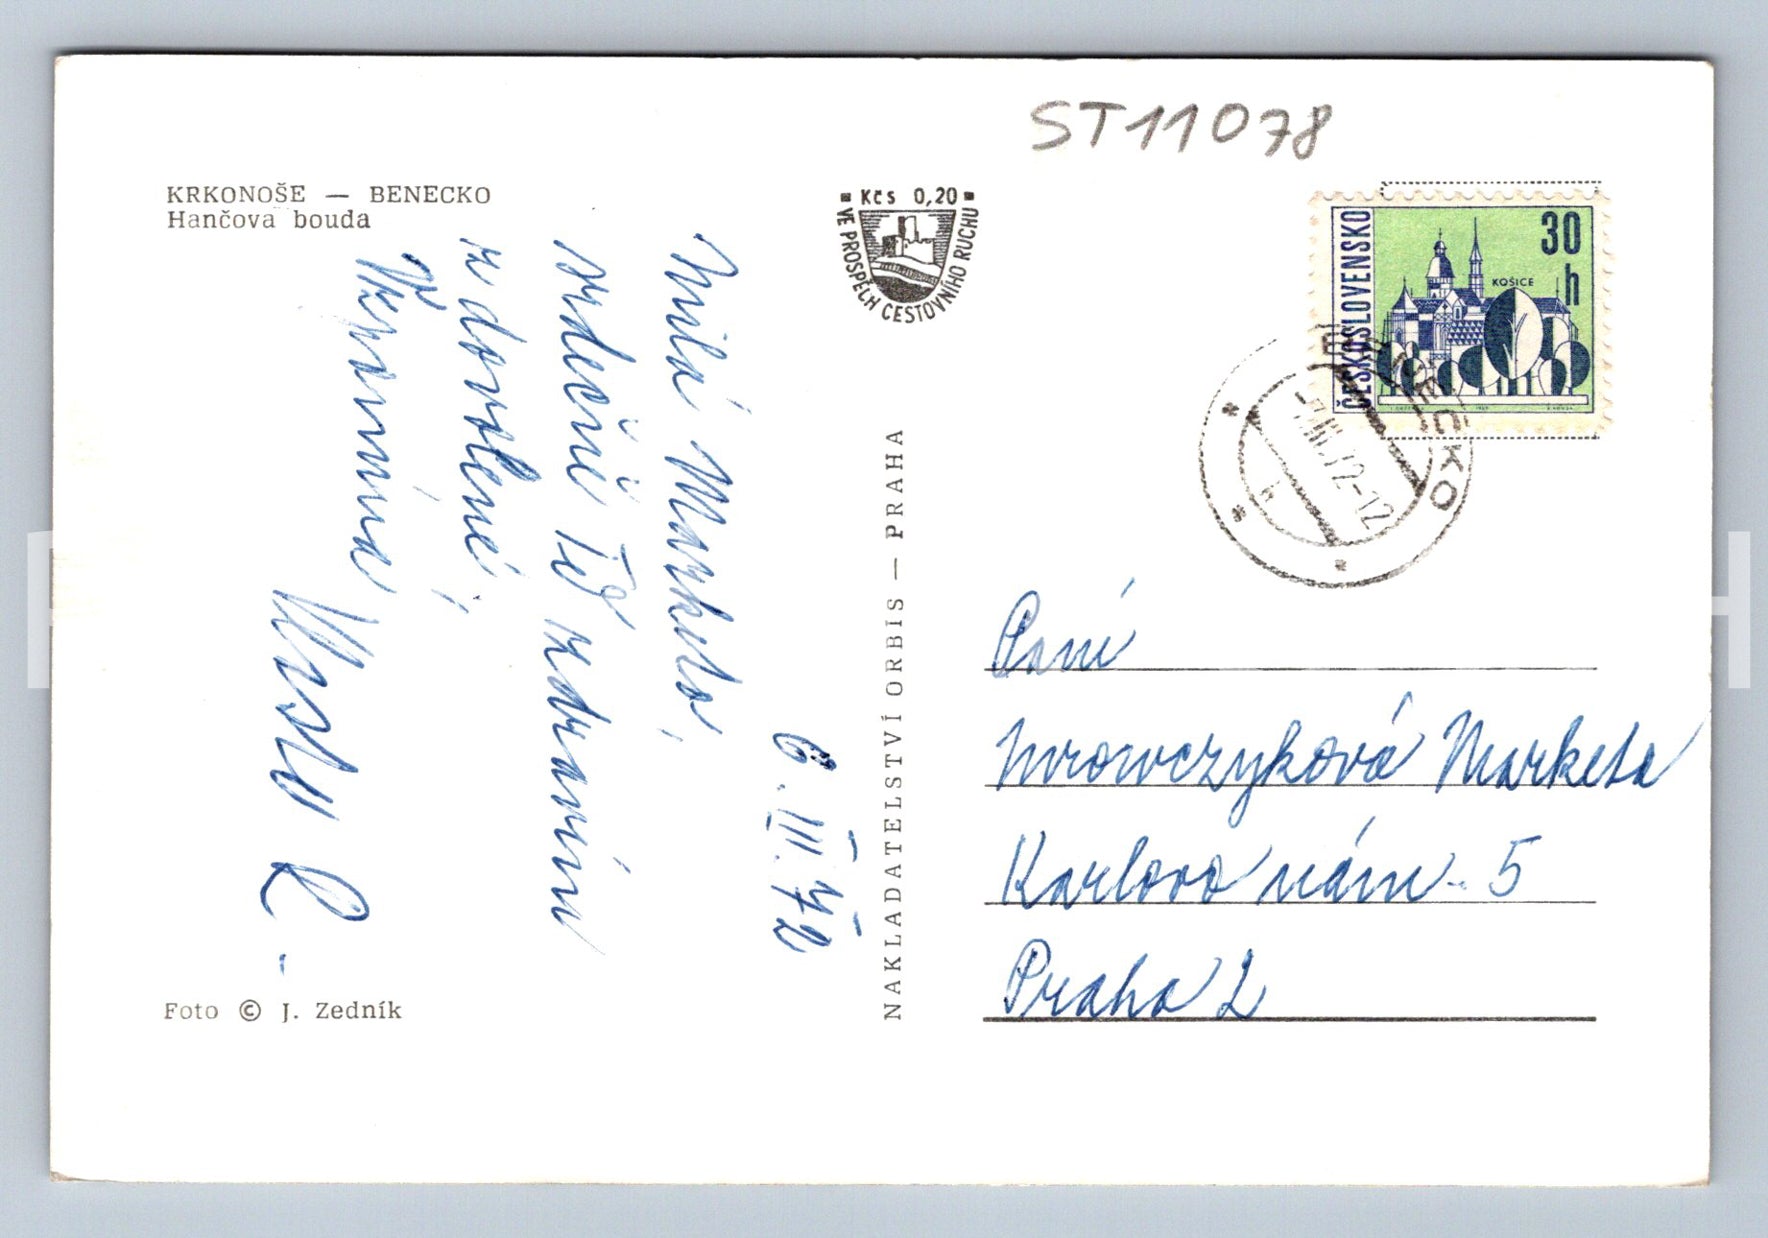 ST11078
KRKONOŠE — BENECKO
Hančova bouda
Kčs 0,20
VE PROSPĚCH CESTOVNÍHO RUCHU
ČESKOSLOVENSKO
30
h
KOŠICE
-7.III.72-12
6.III.72
Milá Marketo,
srdečně Tě zdravím
z dovolené,
Foto © J. Zedník
NAKLADATELSTVÍ ORBIS — PRAHA
Paní
Mrowczyková Marketa
Karlovo nám. 5
Praha 2